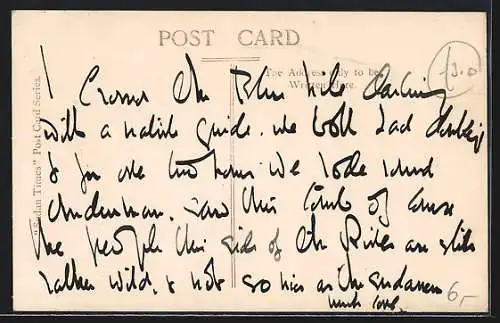 POST CARD
The Address only to be
Written Here.
"Sudan Times" Post Card Series.
1
13.0
Crossed the Blue Nile
with a native guide. we both had
& for two hours we rode round
Omdurman. saw the tomb of course
The people this side of the River are still
rather wild, & not so nice as the Sudanese
much love.
6,-